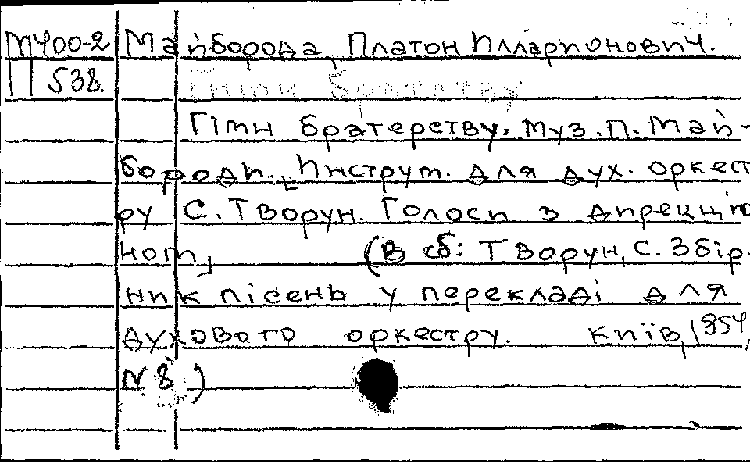 М400-2 Майборода, Платон Илларионович.
П 538.
Гімн братерству. Муз. П. Май-
бороди. Инструт. для дух. оркест
ру С. Творун. Голоси з дирекціо
ном, (в сб: Творун, С. Збір-
ник пісень у перекладі для
духового оркестру. Київ, 1954,
N 8)